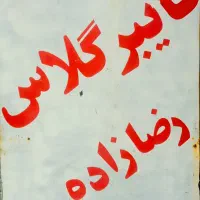 فایبرگلاس
رضازاده